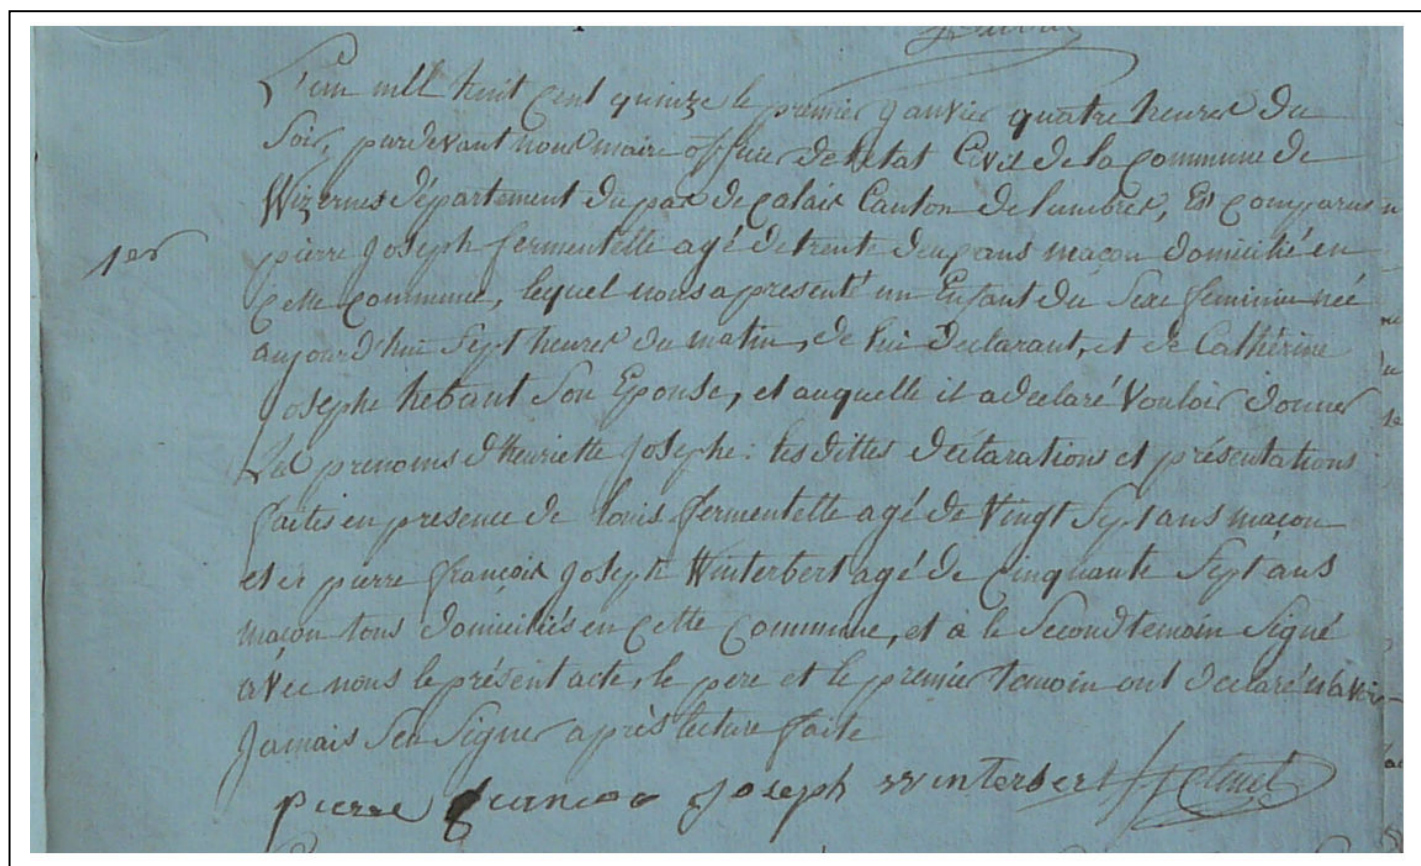 L'an mill huit cent quinze le premier janvier quatre heures du
Soir, pardevant nous maire officier de letat Civil de la commune de
Wizernes département du pas de calais Canton de lumbres, Est comparu
1er
pierre Joseph fermentelle agé de trente deux ans maçon domicilié en
cette commune, lequel nous a presenté un Enfant du Sexe feminin née
aujourd'hui Sept heures du matin, de lui declarant, et de Cathérine
Josephe hebant Son Epouse, et auquelle il a declaré Vouloir donner
Les prenoms d'henriette Josephe: les dittes déclarations et présentations
faites en presence de louis fermentelle agé de Vingt Sept ans maçon
et er pierre françois Joseph Winterbert agé de Cinquante Sept ans
maçon tous domiciliés en cette commune, et à le Second temoin Signé
avec nous le présent acte, le pere et le premier temoin ont declaré
Jamais Signer après lecture faite
pierre Joseph winterbert